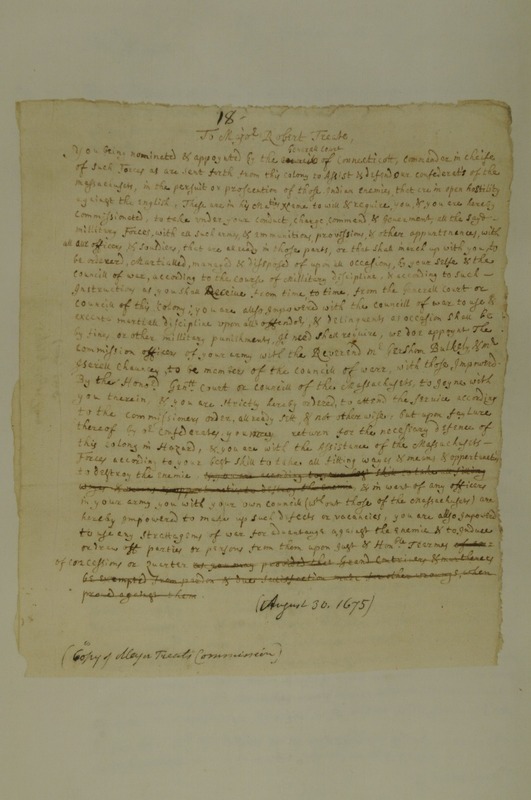 18
To Major Robert Treate,
Generll Court
You being nominated & appoynted by the councill of Connecticott, commander in cheife
of such Forces as are sent forth from this colony to Assist & defend our confederats of the
massachusets, in the persuit or prosecution of those Indian enemies, that are in open hostility
against the English, These are in his Maties name to will & require you, & you are hereby
Commissionated, to take under your conduct, charge, command & Government, all the sayd
military Forces, with all such arms, & ammunition, provissions, & other appurtenances, with
all officers & souldiers, that are already in those parts, or that shall march up with you, to
be ordered, marshalled, managed & disposed of upon all occasions, by your selfe & the
councill of war, according to the course of millitary discipline, & according to such
Instructions as you shall Receive from time, to time, from the Generll court or
councill of this colony; you are also Impowered with the councill of war to use &
execute martiall discipline upon all offendors, & delinquents as occasion shall be
by fines, or other millitary punishments, if need shall require, we doe appoynt the
commission officers of your army, with the Reverend mr Gershom Bulkely, & mr
Israell Chauncy, to be members of the councill of warr, with those, Impowered
By the Honord Genrll Court or councill of the Massachusets, to joyne with
you therein, & you are strictly hereby ordered, to attend the service according
to the commissioners order, allready sett, & not otherwise, but upon faylure
thereof by our Confederates, you return for the necessary defence of
this colony in Hazard, & you are with the Assistance of the Massachusets
Forces according to your best skill to take all fitting wayes & means & opportunities
to destroy the Enemie. according to your best skill to take all fitting
wayes & means & opportunities to destroy the Enemie & in want of any officers
in your army, you with your own councill (without those of the massachusets) are
hereby Impowered to make up such defects or vacancies, you are also Impowered
to use any stratagems of war for advantage against the enemie & to Induce
or draw off parties or persons from them upon Just & Honble Termes
of concessions or quarter as you may provided that Grand Contrivers & murtherers
be exempted from pardon & due satisfaction made for other wrongs, when
proved against them.
(August 30. 1675)
(Copy of Major Treats Commission)